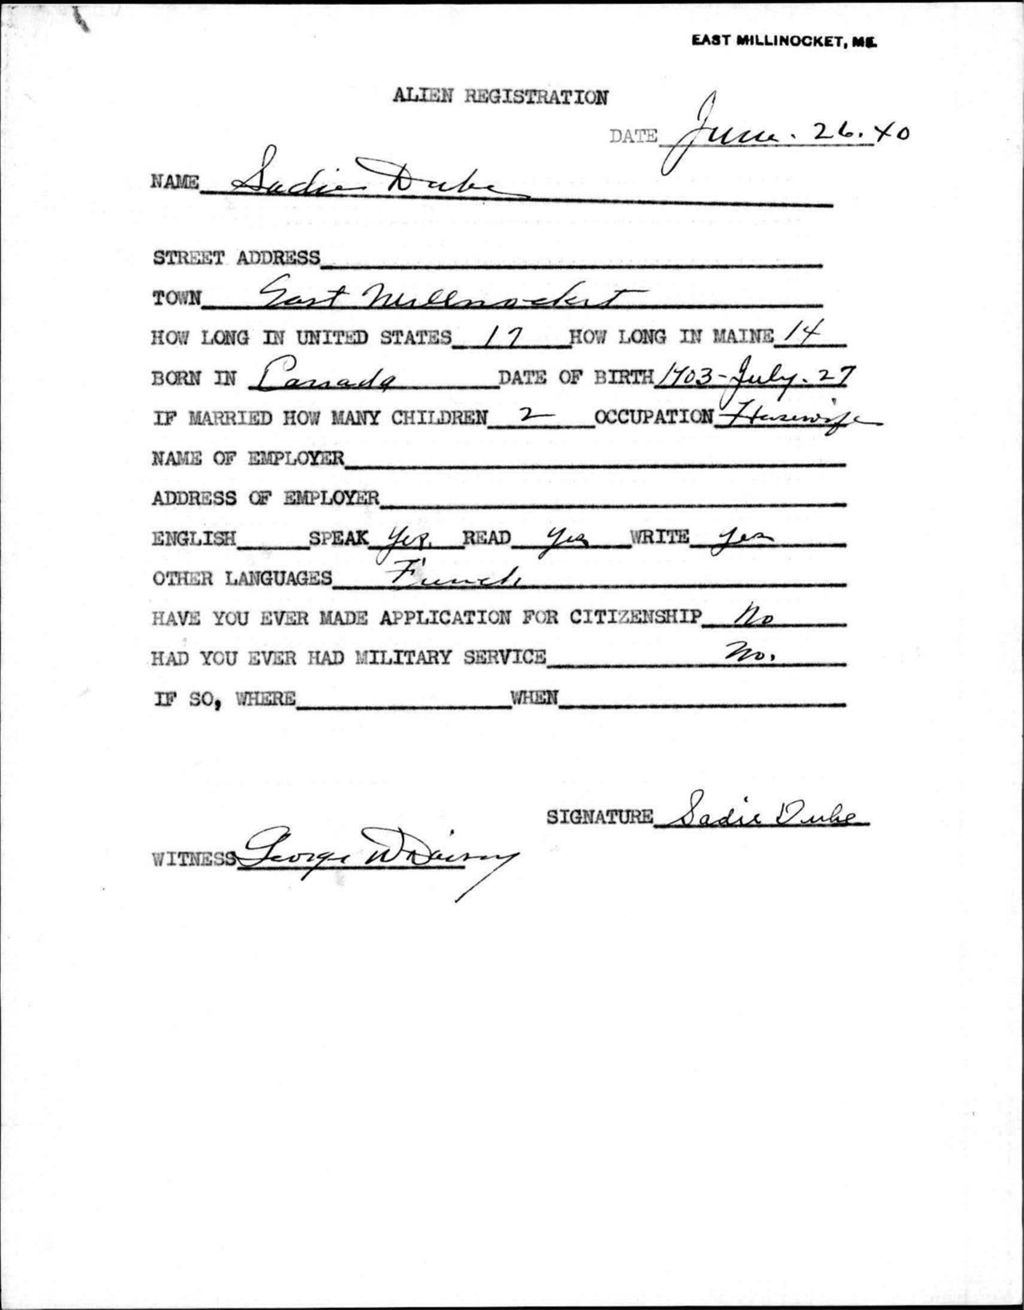 EAST MILLINOCKET, ME.
ALIEN REGISTRATION
DATE June. 26. 40
NAME Sadie Dube
STREET ADDRESS
TOWN East Millinocket
HOW LONG IN UNITED STATES 17 HOW LONG IN MAINE 14
BORN IN Canada DATE OF BIRTH 1903-July. 27
IF MARRIED HOW MANY CHILDREN 2 OCCUPATION Housewife
NAME OF EMPLOYER
ADDRESS OF EMPLOYER
ENGLISH SPEAK Yes. READ Yes WRITE Yes
OTHER LANGUAGES French
HAVE YOU EVER MADE APPLICATION FOR CITIZENSHIP No
HAD YOU EVER HAD MILITARY SERVICE No.
IF SO, WHERE WHEN
SIGNATURE Sadie Dube
WITNESS George W